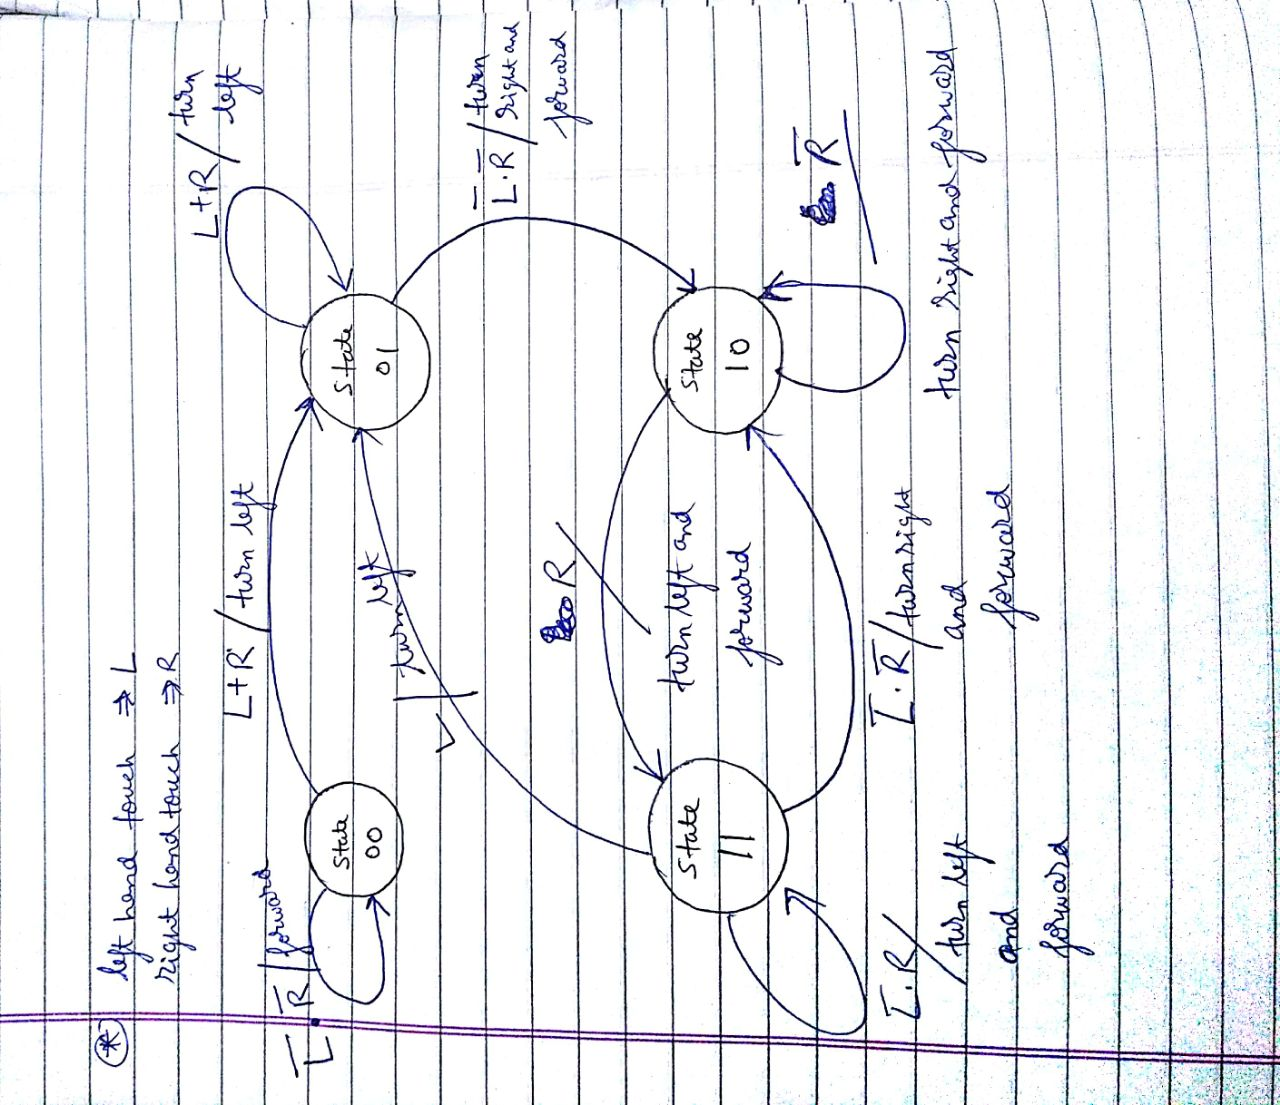 * left hand touch ⇒ L
right hand touch ⇒ R
L̅.R̅/forward
L+R/turn left
L+R/turn
left
State
00
State
01
L/turn left
L̅.R̅/turn
right and
forward
R/
turn left and
forward
R̅/
turn right and forward
State
11
State
10
L̅.R̅/turn right
and
forward
L̅.R/turn left
and
forward